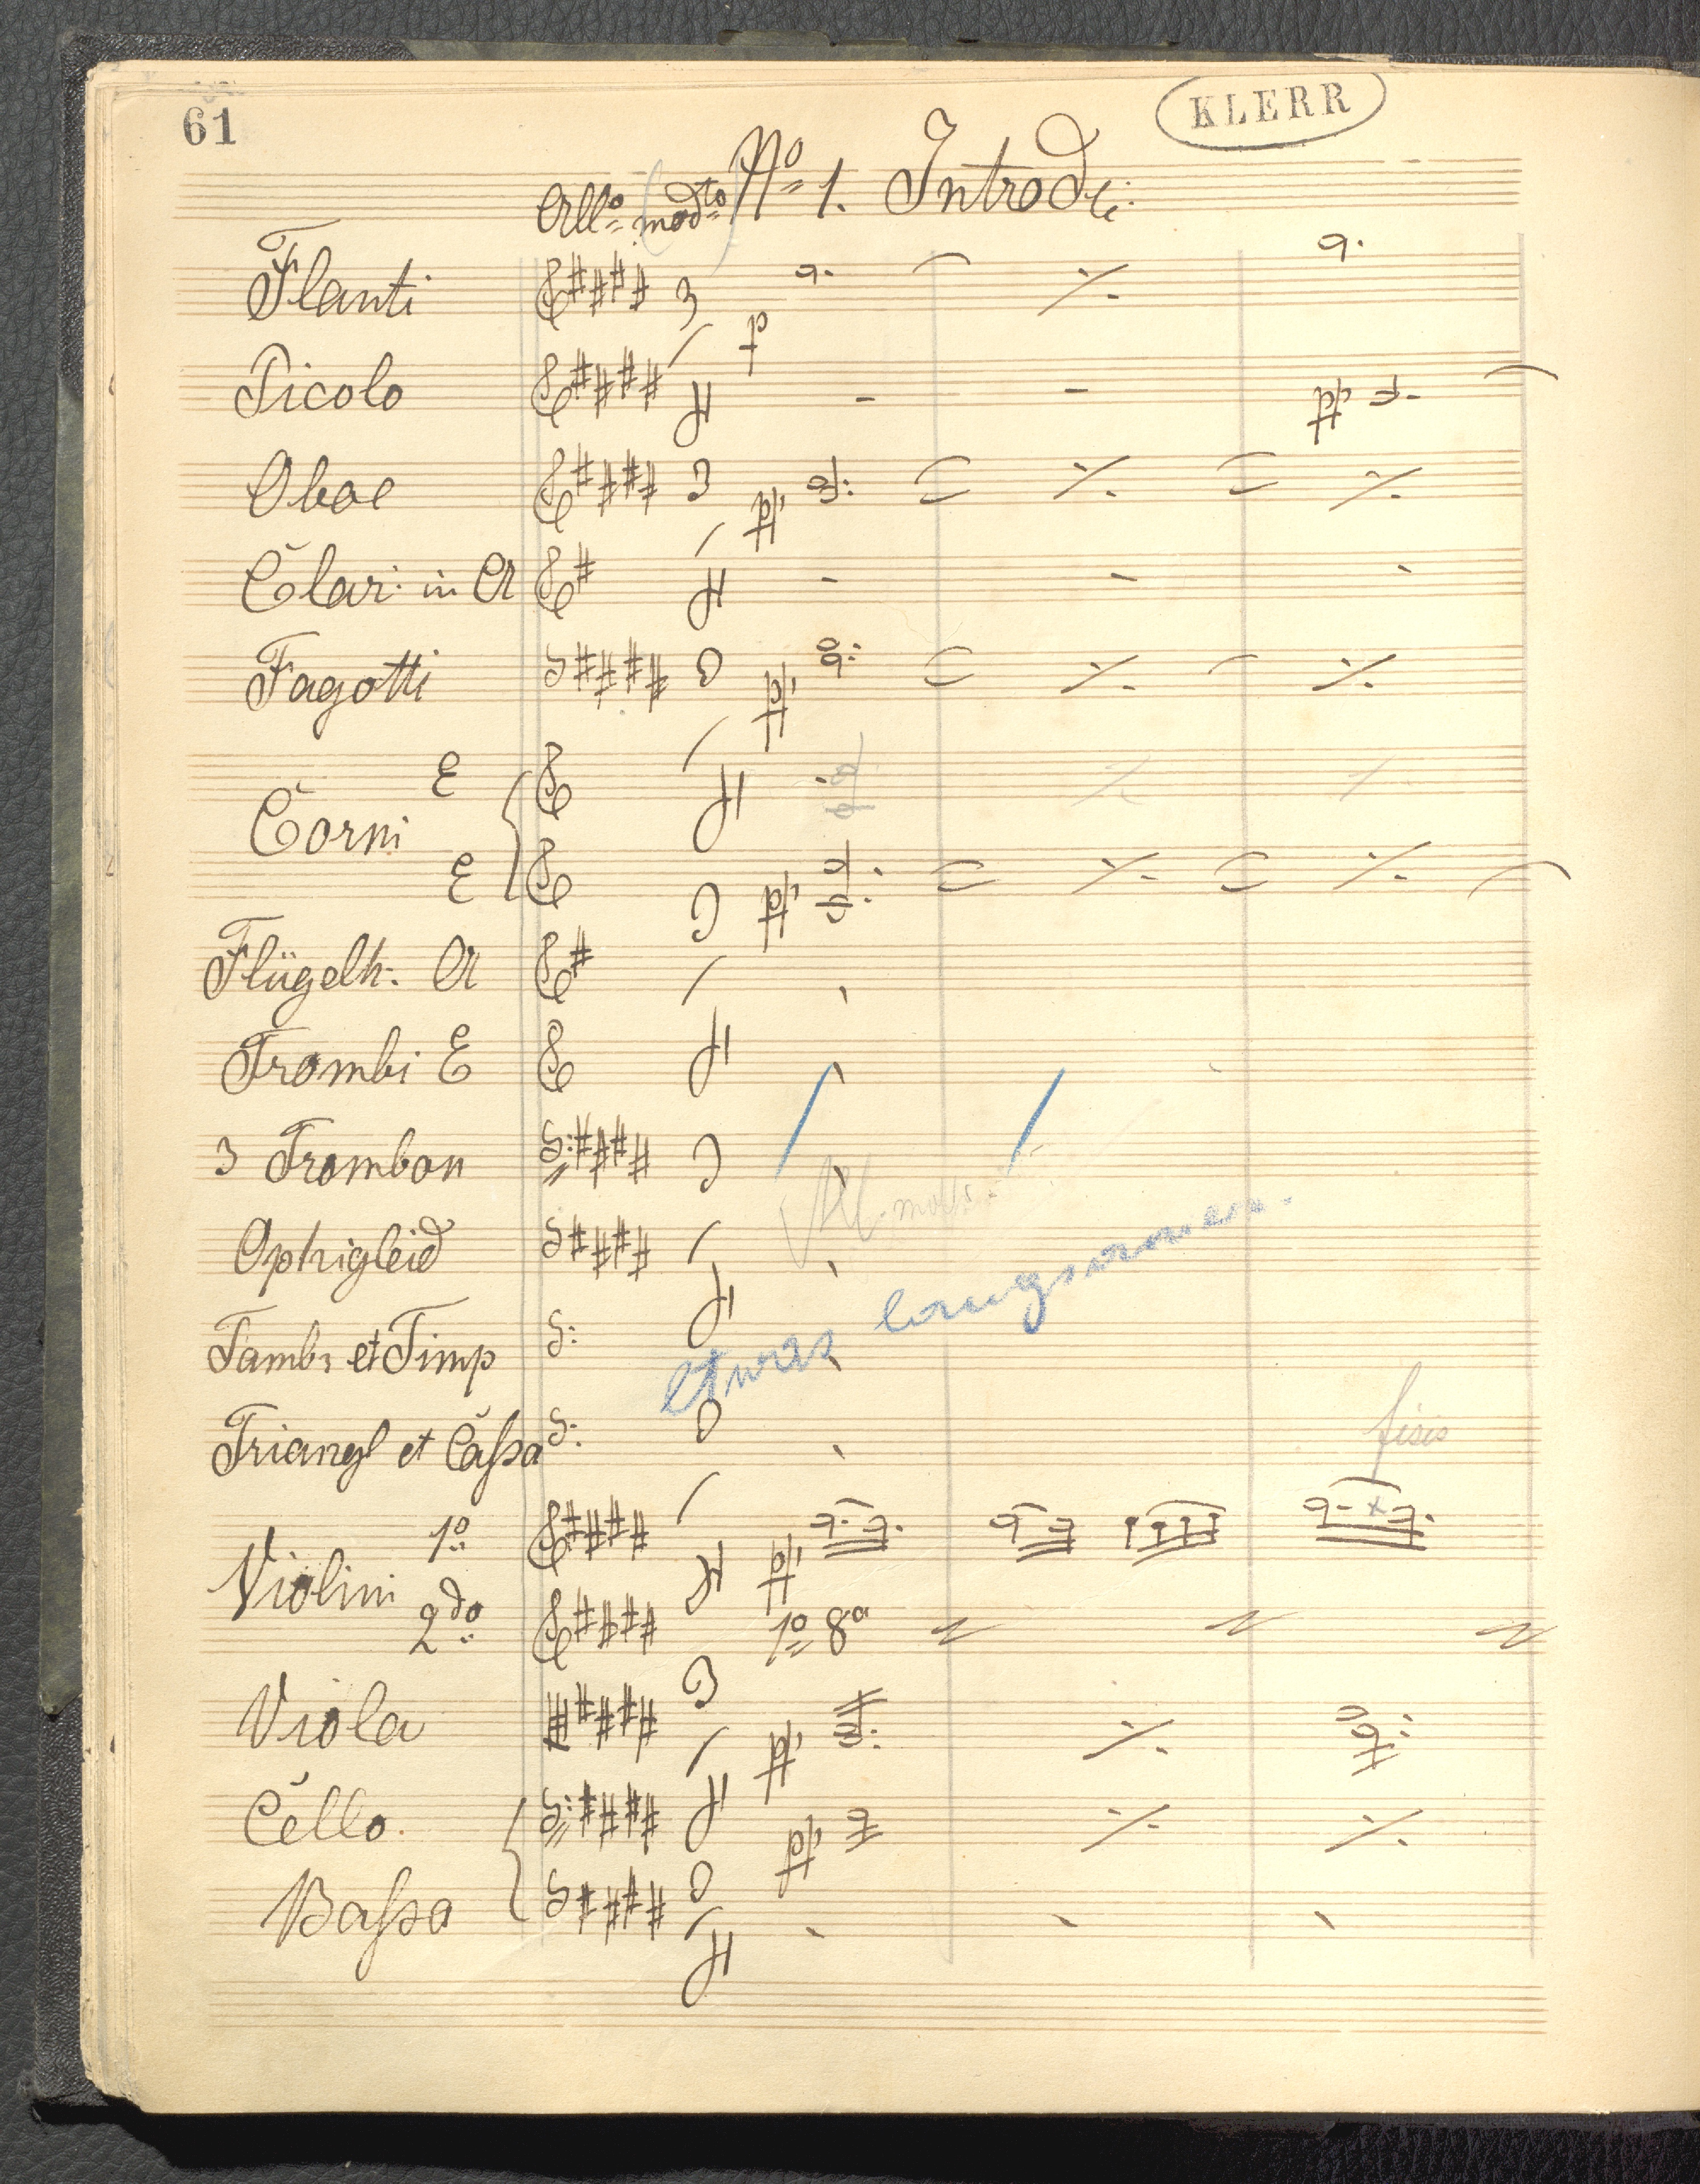 61
KLERR
No 1. Introd:
Allo (modto)
Flauti
Picolo
Oboe
Clari: in A
Fagotti
E
Corni
E
Flügelh. A
Trombi E
3 Trombon
All. mod.
Ophigleid
etwas langsamer.
Tamb: et Timp
Triangl et Caſsa
fisis
1o
Violini
2do
1o 8a
Viola
Cello.
Baſso